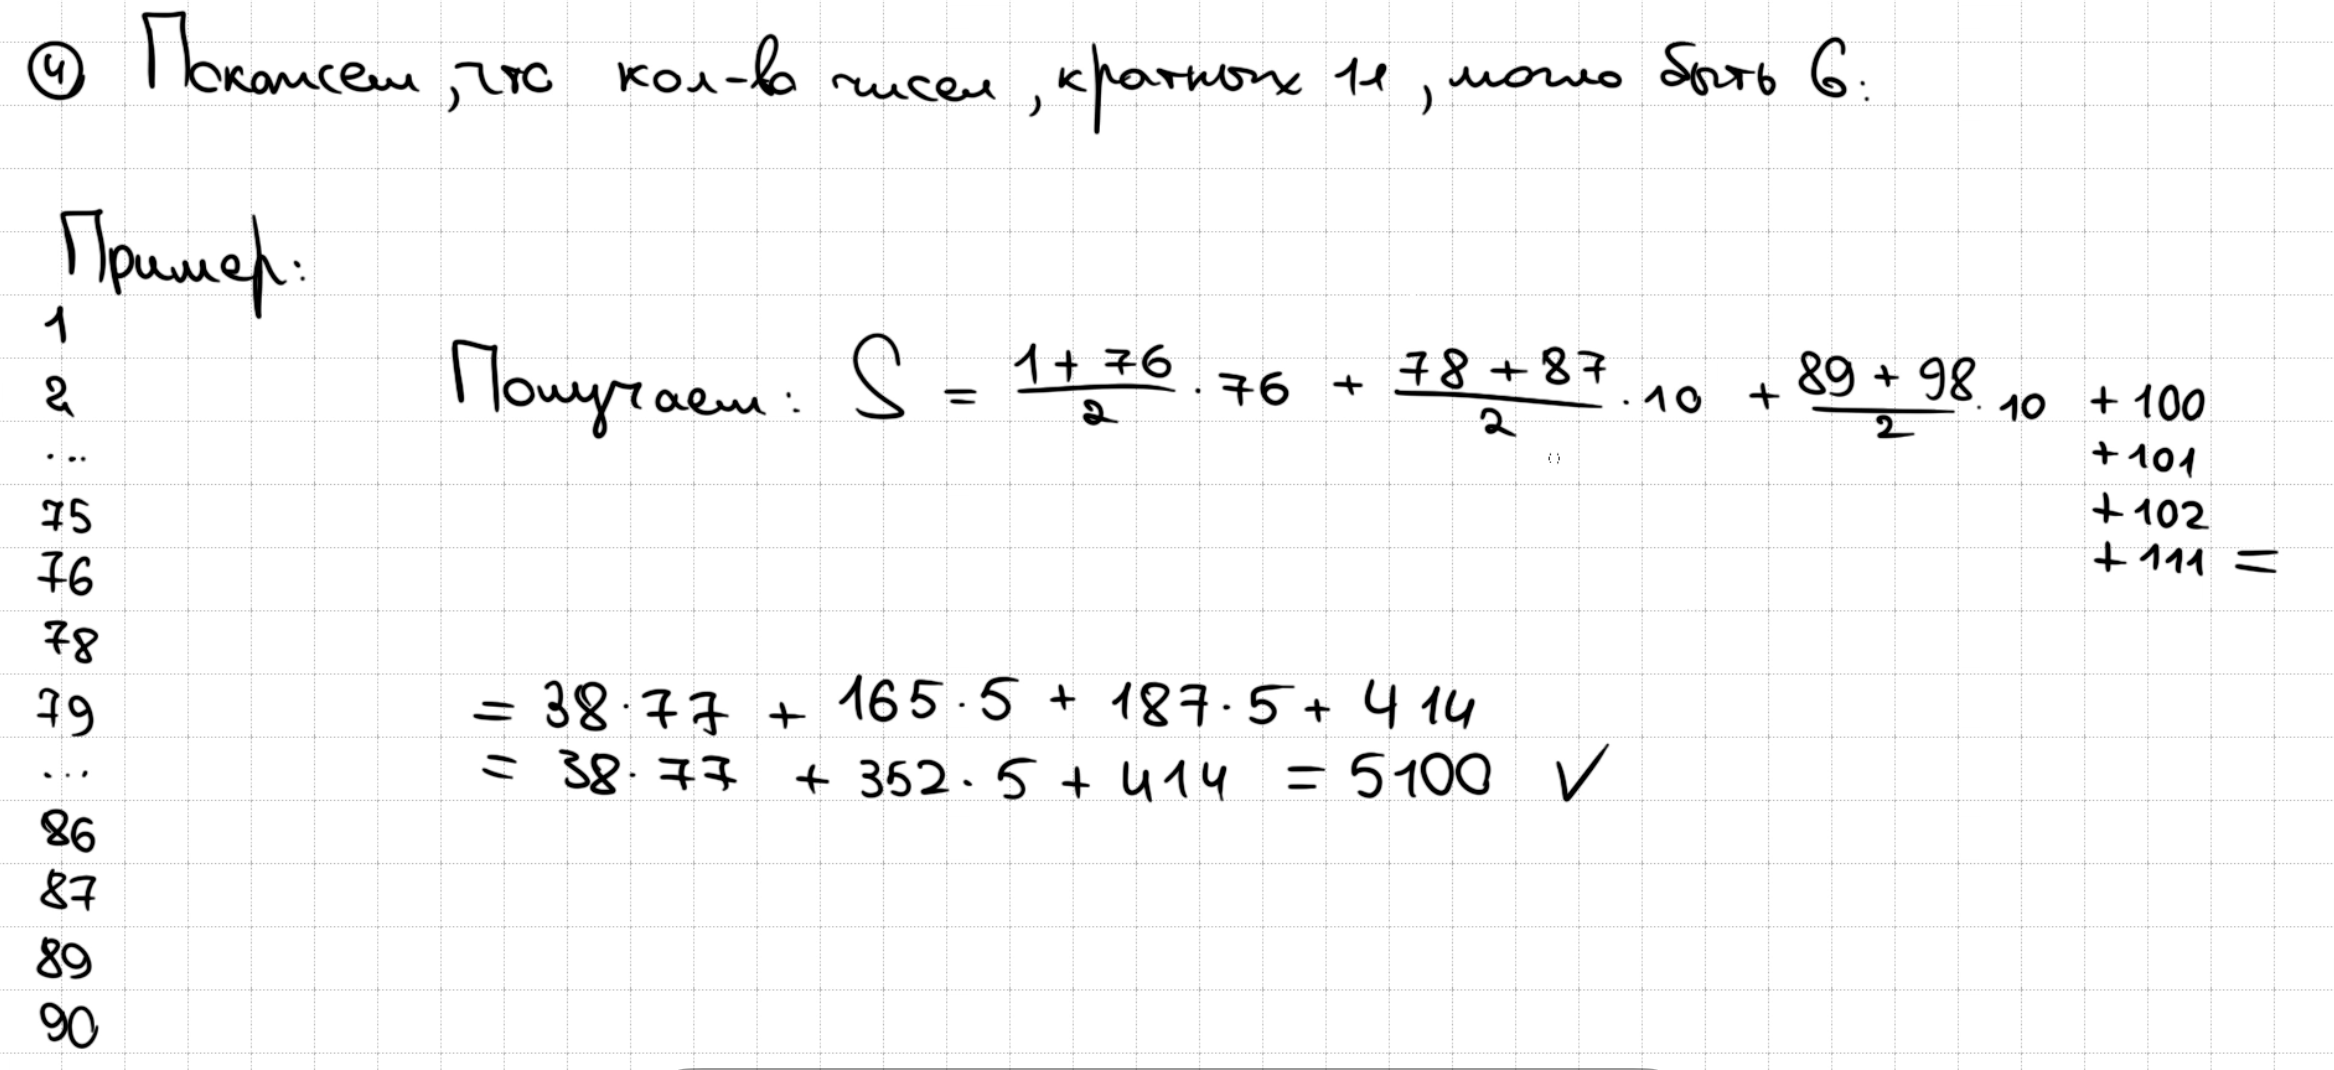 ④ Покажем, что кол-во чисел, кратных 11, могло быть 6:
Пример:
1
2
...
75
76
78
79
...
86
87
89
90
Получаем: S = (1 + 76)/2 · 76 + (78 + 87)/2 · 10 + (89 + 98)/2 · 10 + 100
+ 101
+ 102
+ 111 =
= 38 · 77 + 165 · 5 + 187 · 5 + 414
= 38 · 77 + 352 · 5 + 414 = 5100 ✓